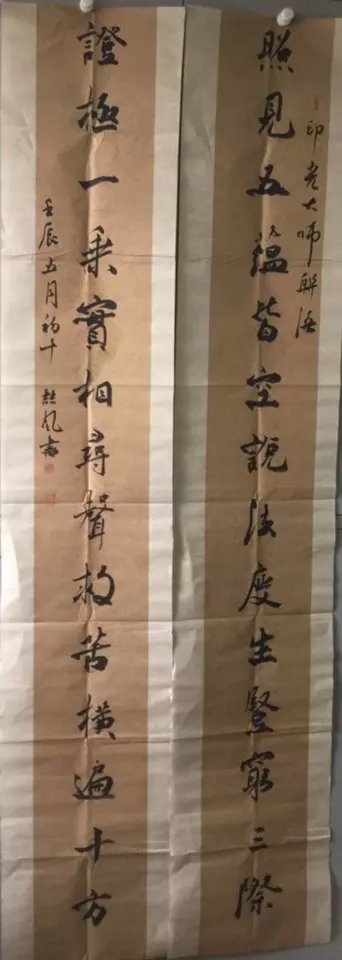 印老大师联语
照見五蕴皆空說法度生竪窮三際
證極一乘實相尋聲救苦橫遍十方
壬辰五月初十
書